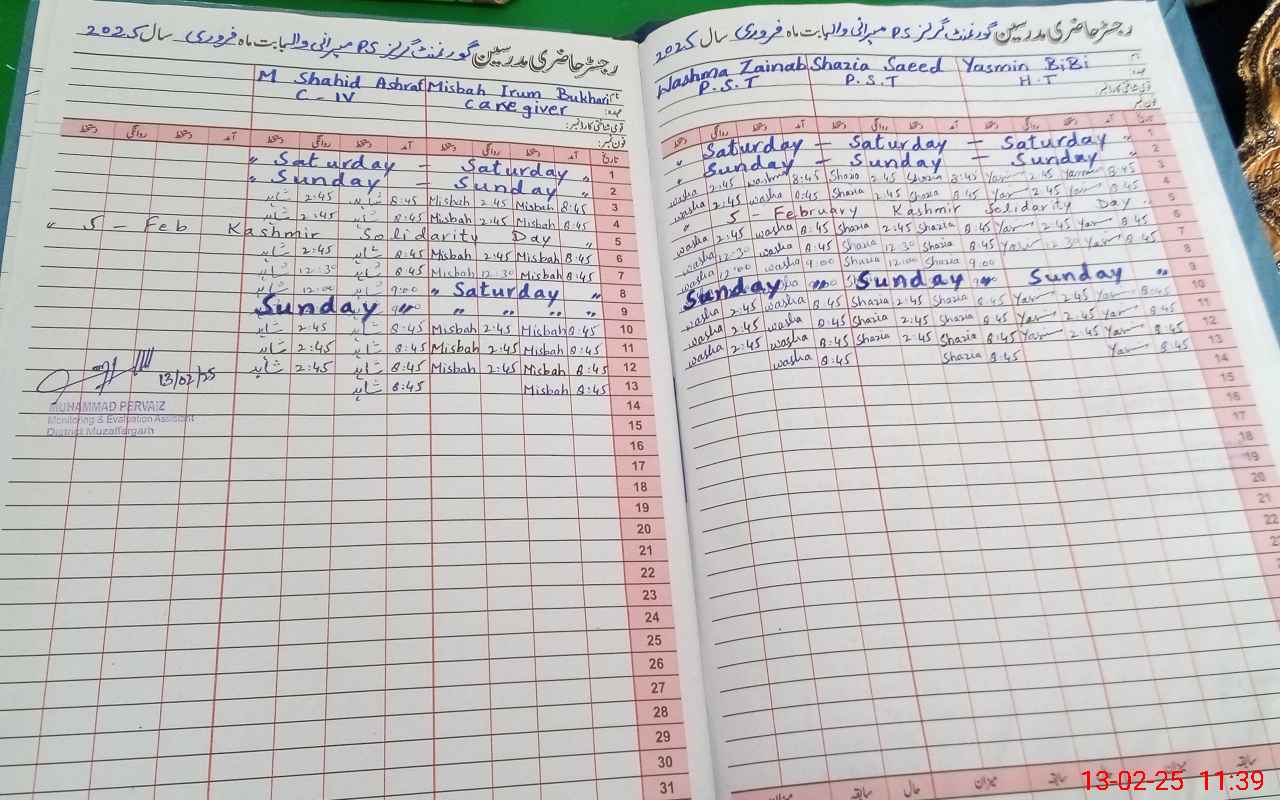 رجسٹر حاضری مدرسین گورنمنٹ گرلز PS میرانی والا بابت ماہ فروری سال 2025
M Shahid Ashraf Misbah Irum Bukhari نام
C - IV caregiver عہدہ:
قومی شناختی کارڈ نمبر:
فون نمبر:
دستخط روانگی دستخط آمد دستخط روانگی دستخط آمد دستخط روانگی دستخط آمد تاریخ
" Saturday - Saturday " 1
" Sunday - Sunday " 2
شاہد 2:45 شاہد 8:45 Misbah 2:45 Misbah 8:45 3
شاہد 2:45 شاہد 8:45 Misbah 2:45 Misbah 8:45 4
" 5 - Feb Kashmir Solidarity Day " 5
شاہد 2:45 شاہد 8:45 Misbah 2:45 Misbah 8:45 6
شاہد 12:30 شاہد 8:45 Misbah 12:30 Misbah 8:45 7
شاہد 12:00 شاہد 9:00 " Saturday " 8
Sunday " " " " 9
شاہد 2:45 شاہد 8:45 Misbah 2:45 Misbah 8:45 10
شاہد 2:45 شاہد 8:45 Misbah 2:45 Misbah 8:45 11
شاہد 2:45 شاہد 8:45 Misbah 2:45 Misbah 8:45 12
شاہد 8:45 Misbah 8:45 13
13/02/25
MUHAMMAD PERVAIZ
Monitoring & Evaluation Assistant
District Muzaffargarh
14
15
16
17
18
19
20
21
22
23
24
25
26
27
28
29
30
31
رجسٹر حاضری مدرسین گورنمنٹ گرلز PS میرانی والا بابت ماہ فروری سال 2025
Washma Zainab Shazia Saeed Yasmin BiBi نام
P.S.T P.S.T H.T عہدہ:
قومی شناختی کارڈ نمبر:
فون نمبر
دستخط روانگی دستخط آمد دستخط روانگی دستخط آمد دستخط روانگی دستخط آمد
" Saturday - Saturday - Saturday " 1
" Sunday - Sunday - Sunday " 2
washa 2:45 washa 8:45 Shazia 2:45 Shazia 8:45 Yas 2:45 Yas 8:45 3
washa 2:45 washa 8:45 Shazia 2:45 Shazia 8:45 Yas 2:45 Yas 8:45 4
" 5 - February Kashmir Solidarity Day " 5
washa 2:45 washa 8:45 Shazia 2:45 Shazia 8:45 Yas 2:45 Yas 8:45 6
washa 12:30 washa 8:45 Shazia 12:30 Shazia 8:45 Yas 12:30 Yas 8:45 7
washa 12:00 washa 9:00 Shazia 12:00 Shazia 9:00 8
Sunday " Sunday " Sunday " 9
washa 2:45 washa 8:45 Shazia 2:45 Shazia 8:45 Yas 2:45 Yas 8:45 10
washa 2:45 washa 8:45 Shazia 2:45 Shazia 8:45 Yas 2:45 Yas 8:45 11
washa 2:45 washa 8:45 Shazia 2:45 Shazia 8:45 Yas 2:45 Yas 8:45 12
washa 8:45 Shazia 8:45 Yas 8:45 13
14
15
16
17
18
19
20
21
22
سابقہ حال میزان سابقہ میزان
13-02-25 11:39